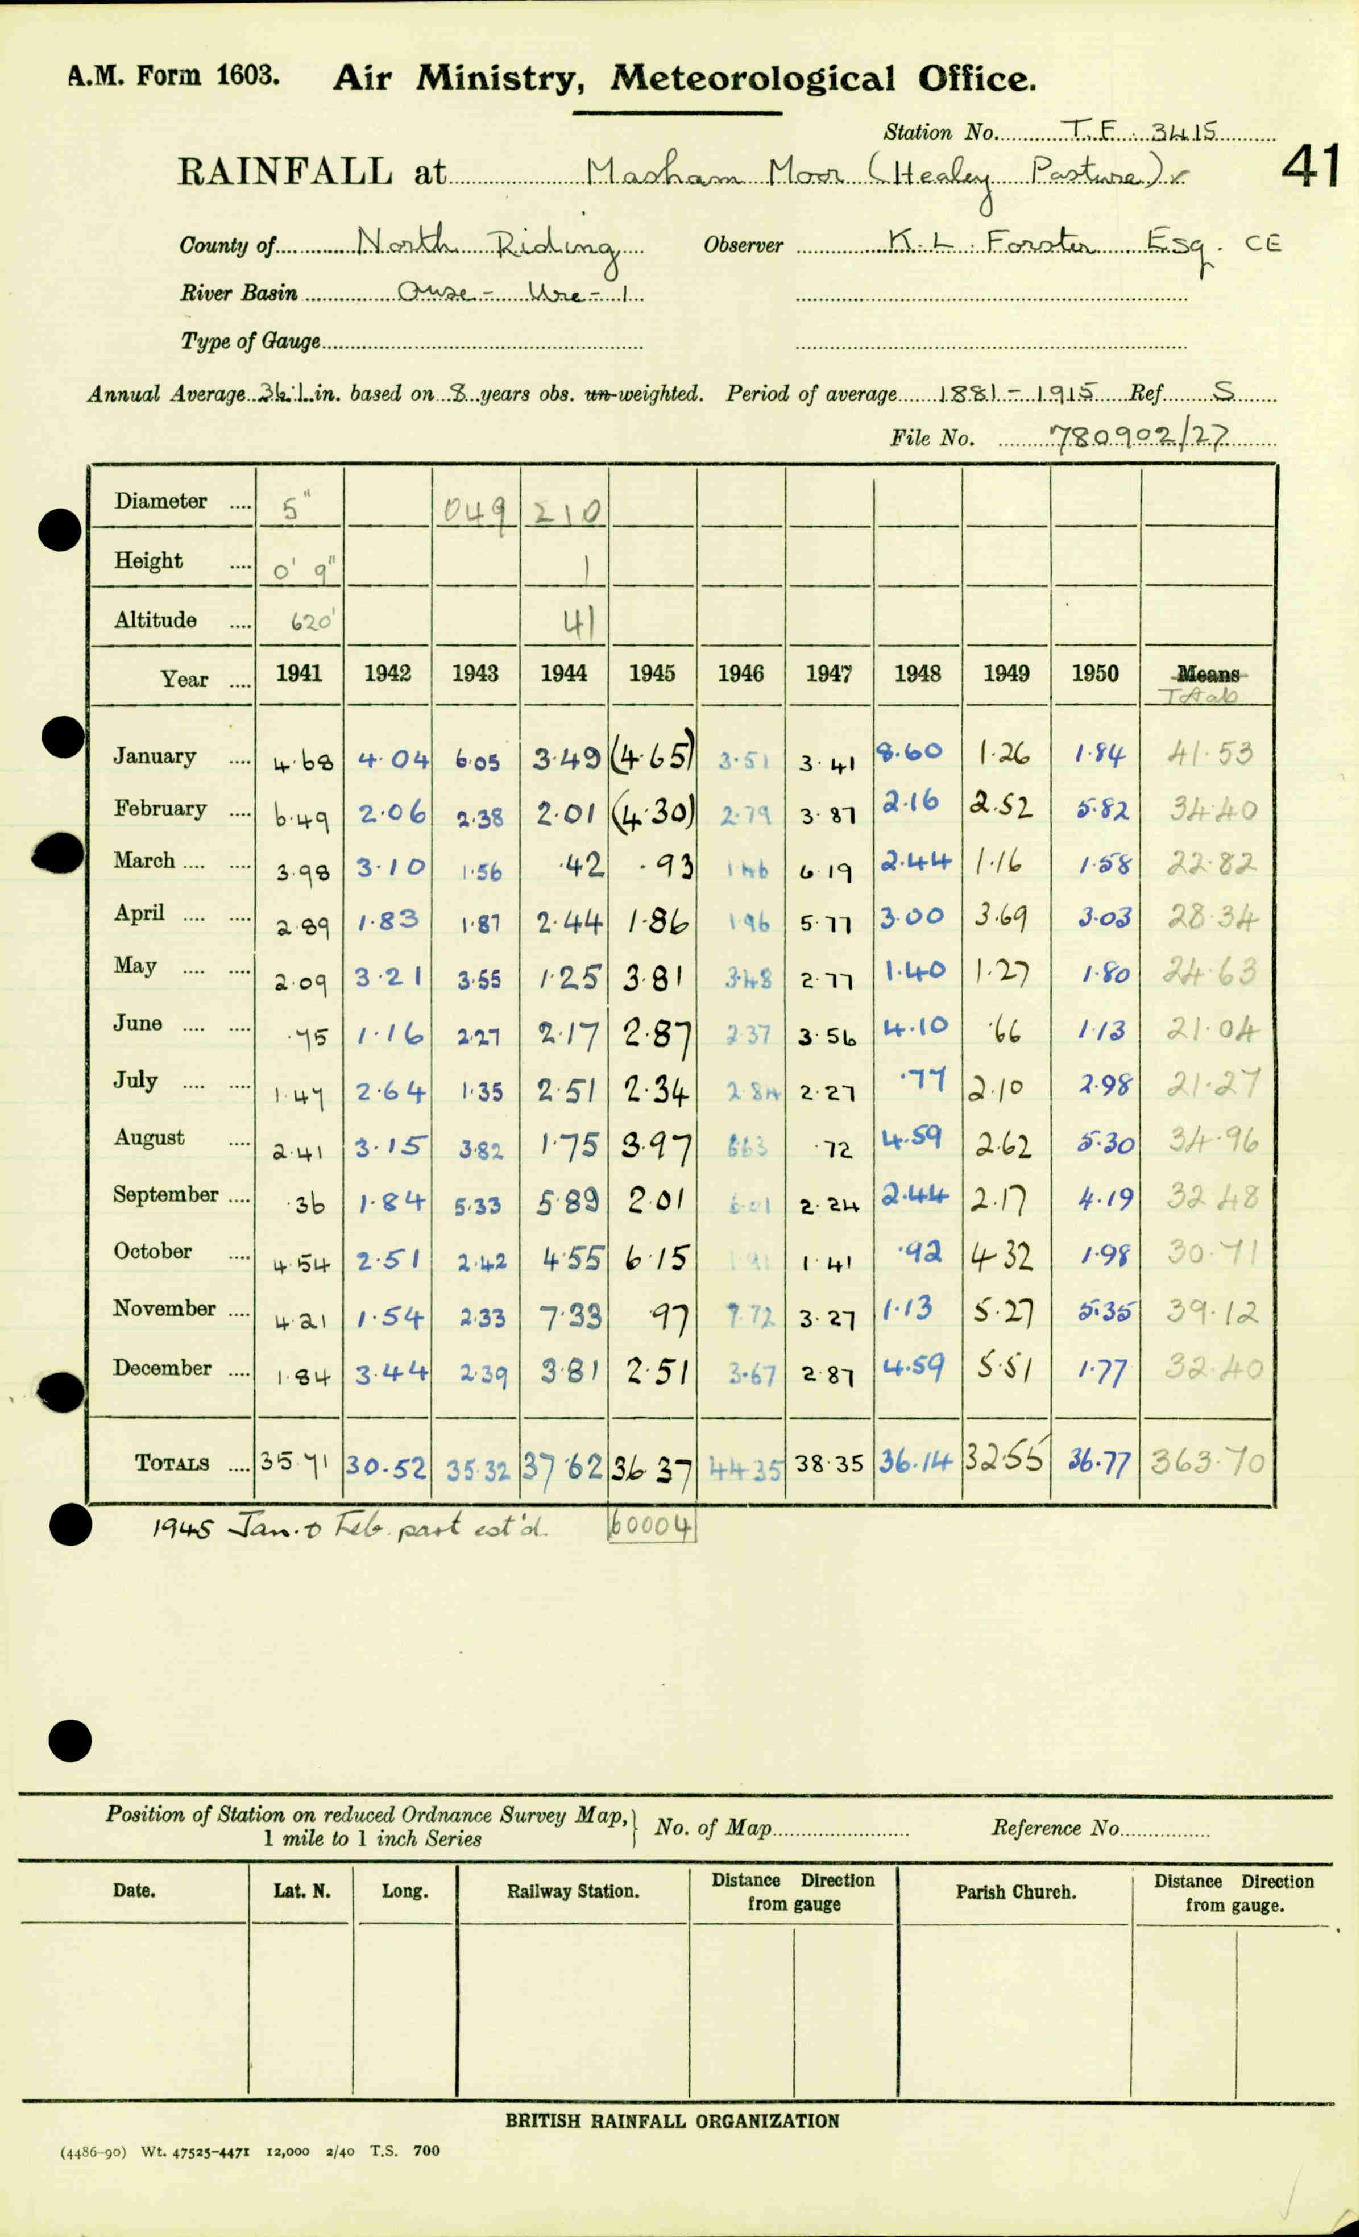 A.M. Form 1603. Air Ministry, Meteorological Office.
Station No. T.F. 3415
41
RAINFALL at Masham Moor (Healey Pasture) ✓
County of North Riding Observer K. L. Forster Esq. CE
River Basin Ouse - Ure - 1
Type of Gauge
Annual Average 36.1 in. based on 8 years obs. un-weighted. Period of average 1881 - 1915 Ref. S
File No. 780902/27
Diameter 5" 049 210
Height 0' 9" 1
Altitude 620' 41
Year 1941 1942 1943 1944 1945 1946 1947 1948 1949 1950 Means
Totals
January 4.68 4.04 6.05 3.49 (4.65) 3.51 3.41 8.60 1.26 1.84 41.53
February 6.49 2.06 2.38 2.01 (4.30) 2.79 3.87 2.16 2.52 5.82 34.40
March 3.98 3.10 1.56 .42 .93 1.46 6.19 2.44 1.16 1.58 22.82
April 2.89 1.83 1.87 2.44 1.86 1.96 5.77 3.00 3.69 3.03 28.34
May 2.09 3.21 3.55 1.25 3.81 3.48 2.77 1.40 1.27 1.80 24.63
June .75 1.16 2.27 2.17 2.87 2.37 3.56 4.10 .66 1.13 21.04
July 1.47 2.64 1.35 2.51 2.34 2.84 2.27 .77 2.10 2.98 21.27
August 2.41 3.15 3.82 1.75 3.97 6.63 .72 4.59 2.62 5.30 34.96
September .36 1.84 5.33 5.89 2.01 6.01 2.24 2.44 2.17 4.19 32.48
October 4.54 2.51 2.42 4.55 6.15 1.91 1.41 .92 4.32 1.98 30.71
November 4.21 1.54 2.33 7.33 .97 7.72 3.27 1.13 5.27 5.35 39.12
December 1.84 3.44 2.39 3.81 2.51 3.67 2.87 4.59 5.51 1.77 32.40
TOTALS 35.71 30.52 35.32 37.62 36.37 44.35 38.35 36.14 32.55 36.77 363.70
1945 Jan. & Feb. part est'd. 60004
Position of Station on reduced Ordnance Survey Map, No. of Map Reference No.
1 mile to 1 inch Series
Date. Lat. N. Long. Railway Station. Distance from gauge Direction Parish Church. Distance Direction from gauge.
BRITISH RAINFALL ORGANIZATION
(4486-90) Wt. 47525-4471 12,000 2/40 T.S. 700